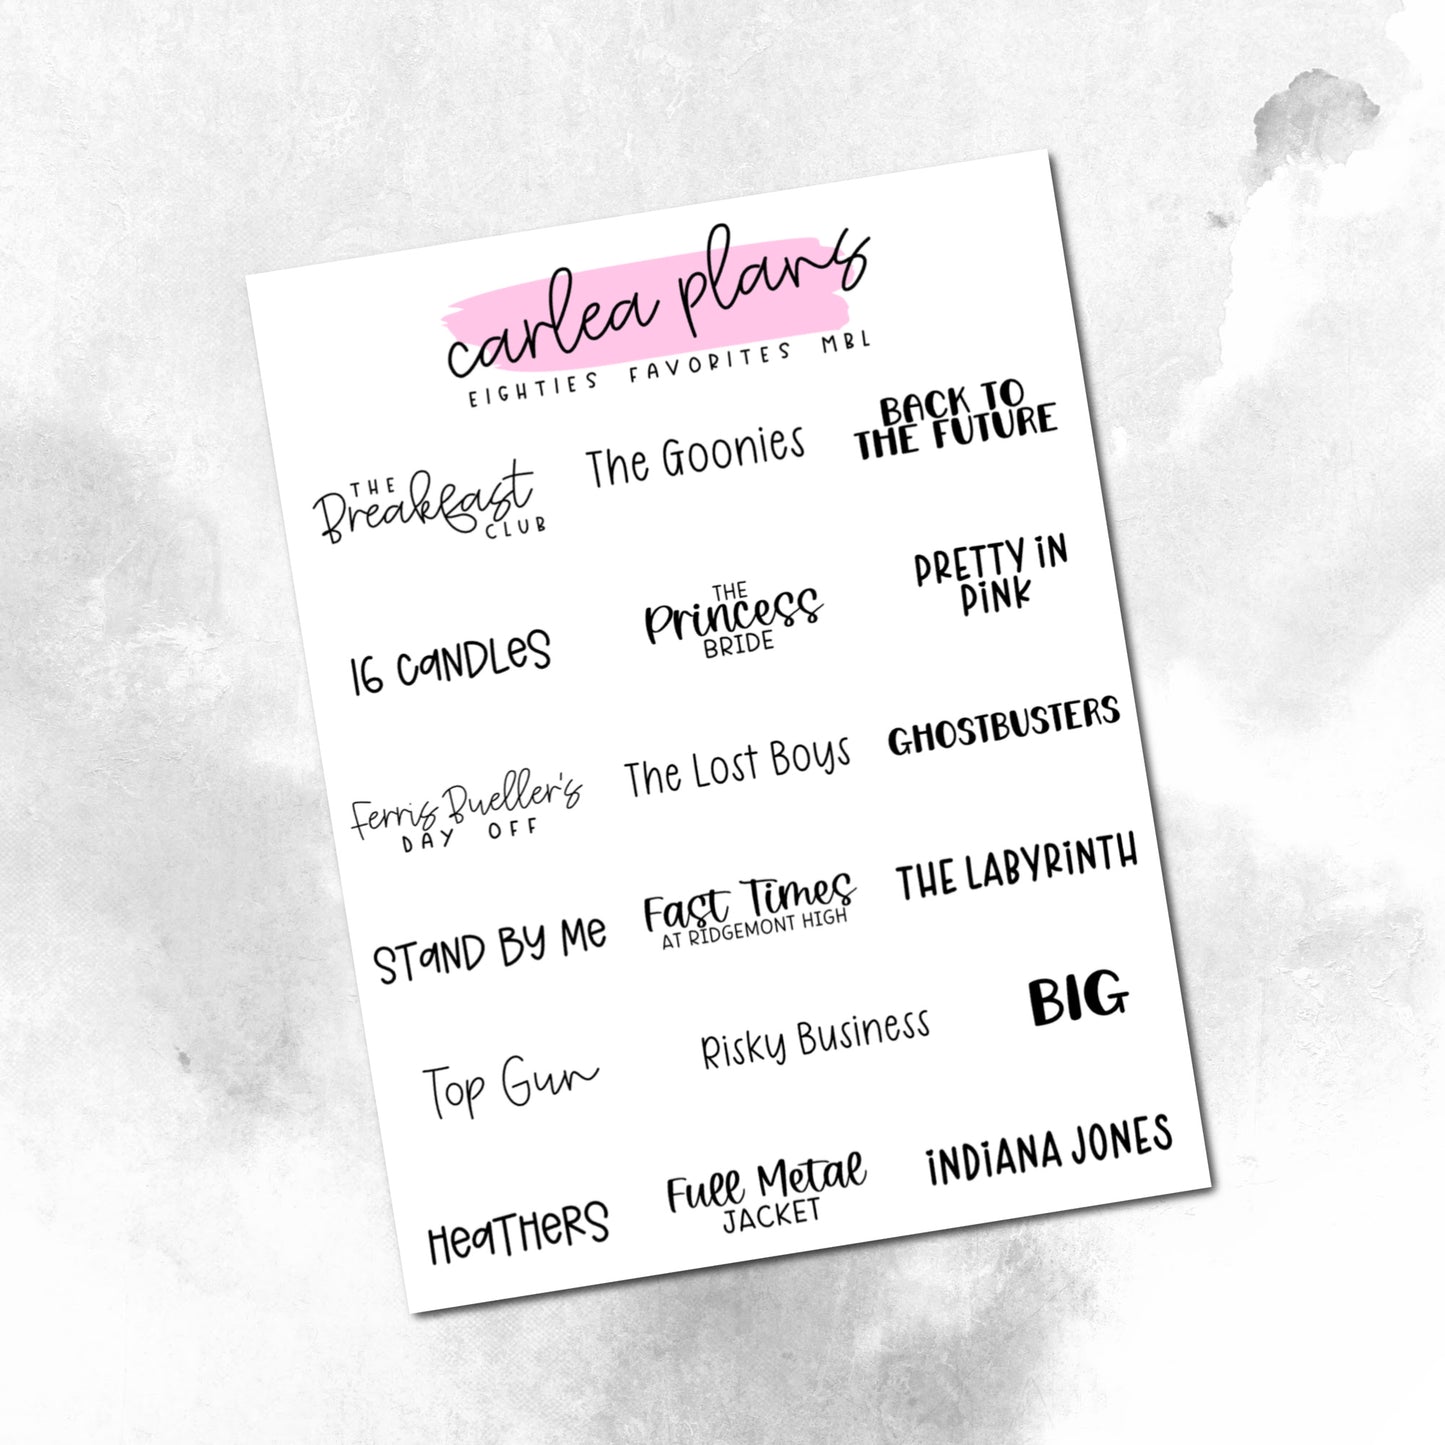 carlea plans
EIGHTIES FAVORITES MBL
THE
Breakfast
CLUB
The Goonies
BACK TO
THE FUTURE
16 CANDLES
THE
Princess
BRIDE
PRETTY IN
PINK
Ferris Bueller's
DAY OFF
The Lost Boys
GHOSTBUSTERS
STAND BY ME
Fast Times
AT RIDGEMONT HIGH
THE LABYRINTH
Top Gun
Risky Business
BIG
HEATHERS
Full Metal
JACKET
INDIANA JONES